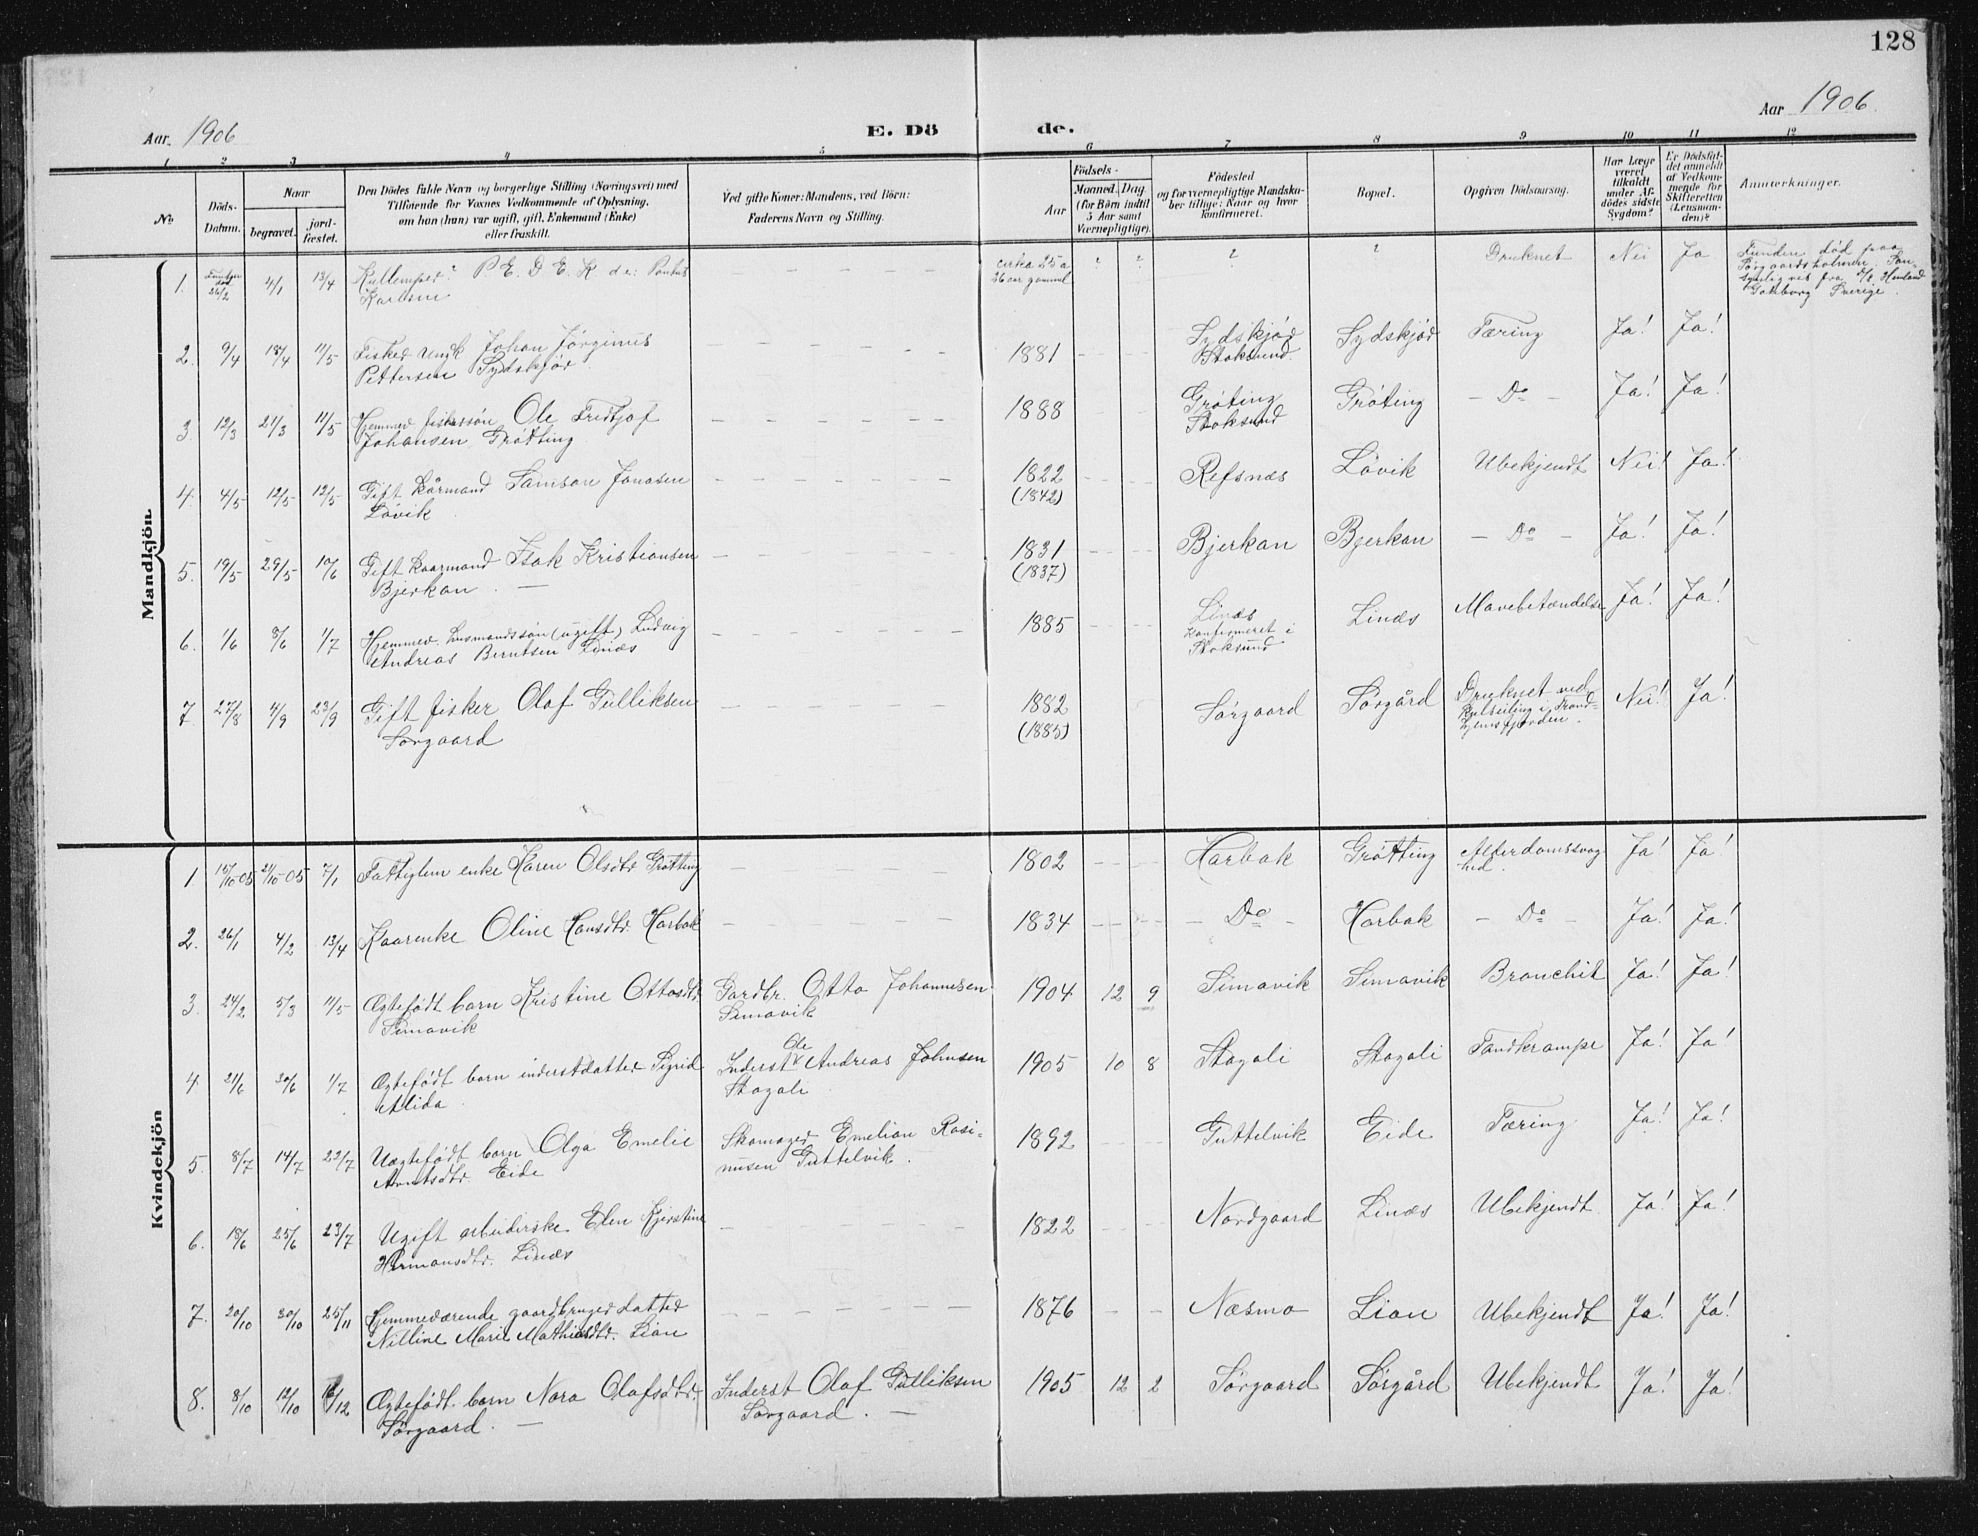 128
Aar 1906
E. Dö
de.
Aar 1906.
1 2 3 4 5 6 7 8 9 10 11 12
No
Döds-
Datum.
Naar
begravet.
jord-
fæstet.
Den Dödes fulde Navn og borgerlige Stilling (Næringsvei) med
Tilföiende for Voxnes Vedkommende af Oplysning,
om han (hun) var ugift, gift, Enkemand (Enke)
eller fraskilt.
Ved gifte Koner: Mandens, ved Börn:
Faderens Navn og Stilling.
Födsels-
Aar
Maaned. Dag.
(for Börn indtil
5 Aar samt
Værnepligtige).
Födested
og for værnepligtige Mandska-
ber tillige: Naar og hvor
konfirmeret.
Bopæl.
Opgiven Dödsaarsag.
Har Læge
været
tilkaldt
under Af-
dödes sidste
Sygdom?
Er Dödsfal-
det anmeldt
af Vedkom-
mende for
Skifteretten
(Lensman-
den)?
Anmærkninger.
Mandkjön.
1. Funden död 26/2 4/1 13/4 P. E. D. E. K d.e: Pontus
Karlsen
cirka 25 a
26 aar gammel ? ? ? ? Druknet Nei Ja
Funden död paa
Sörgaardsholmen. San-
synligvis fra
Gøteborg Sverige.
2. 9/4 18/4 11/5 Fisker Ungk Johan Jörginus
Pettersen Sydskjör. 1881 Sydskjör
Stoksund. Sydskjör Tæring Ja! Ja!
3. 12/3 21/3 11/5 Hjemmev. fiskersön Ole Fredtjof
Johansen Grötting 1888 Gröting
Stoksund Gröting – Do – Ja! Ja!
4. 4/5 12/5 12/5 Gift Kårmand Samson Jonasen
Lövik. 1822
(1842) Refsnæs Lövik Ubekjendt Nei! Ja!
5. 19/5 29/5 10/6 Gift Kaarmand Isak Kristiansen
Bjerkan. — 1831
(1837) Bjerkan Bjerkan – Do – Ja! Ja!
6. 1/6 8/6 1/7 Hjemmev. husmandssön (ugift) Ludvig
Andreas Berntsen Linæs 1885 Linæs
konfirmeret i
Stoksund Linæs Mavebetændelse Ja! Ja!
7. 27/8 4/9 23/9 Gift fisker Olaf Gulliksen
Sörgaard 1882
(1885) Sörgaard Sörgård Druknet ved
kjelseiling i Trond-
hjemsfjorden. Nei! Ja!
Kvindekjön
1. 15/10-05 21/10-05 7/1 Fattiglem enke Karen Olsdtr Grötting 1802 Harbak Grötting Alderdomssvag-
hed. Ja! Ja!
2. 26/1 4/2 13/4 Kaarenke Oline Hansdtr. Harbak 1834 – Do – Harbak – Do – Ja! Ja!
3. 24/2 5/3 11/5 Ægtefödt barn Kristine Ottosdtr.
Simavik Gardbr. Otto Johannesen
Simavik 1904 12 9 Simavik Simavik Bronchit Ja! Ja!
4 21/6 30/6 1/7 Ægtefödt barn inderstdatter Sigrid
Alida. Inderst Ole Andreas Johnsen
Stagali 1905 10 8 Stagali Stagali Tandkrampe Ja! Ja!
5. 8/7 14/7 22/7 Uægtefödt barn Olga Emelie
Arntsdtr. Eide Skomager Emelian Rasi-
nusen Guttelvik. 1892 Guttelvik Eide Tæring Ja! Ja!
6. 18/6 25/6 23/7 Ugift arbeiderske Elen Kjerstine
Hermansdtr. Linæs 1822 Nordgaard Linæs Ubekjendt. Ja! Ja!
7. 20/10 30/10 25/11 Hjemmeværende gaardbruger datter
Nilline Marie Mathiasdtr. Lian 1876 Næsmo Lian Ubekjendt Ja! Ja!
8. 8/10 12/10 16/12 Ægtefödt barn Nora Olafsdtr.
Sörgaard. — Inderst Olaf Gulliksen
Sörgaard. — 1905 12 2 Sörgaard Sörgård Ubekjendt Ja! Ja!